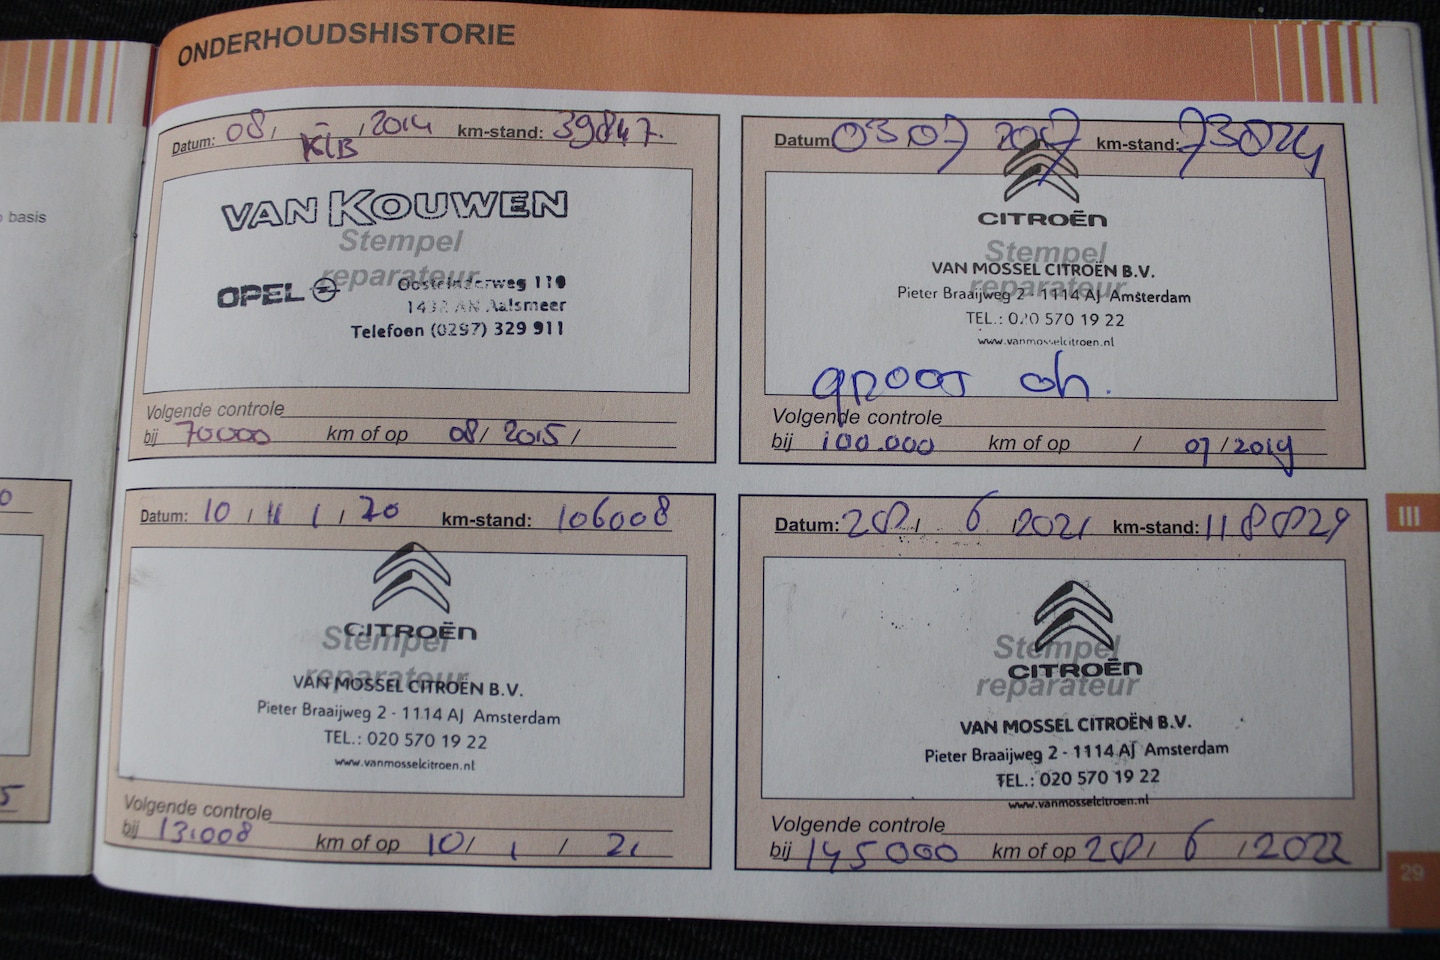 ONDERHOUDSHISTORIE
basis
Datum: 08, - , 2014 km-stand: 39847.
KLB
VAN KOUWEN
Stempel
reparateur
OPEL Oosteinderweg 110
1432 AN Aalsmeer
Telefoon (0297) 329 911
Volgende controle
bij 70000 km of op 08/ 2015 /
Datum 03 07 2017 km-stand: 73024
CITROËN
Stempel
VAN MOSSEL CITROËN B.V.
reparateur
Pieter Braaijweg 2 - 1114 AJ Amsterdam
TEL.: 020 570 19 22
www.vanmosselcitroen.nl
groot oh.
Volgende controle
bij 100.000 km of op / 07/2019
0
Datum: 10 / 11 / 20 km-stand: 106008
CITROËN
Stempel
reparateur
VAN MOSSEL CITROËN B.V.
Pieter Braaijweg 2 - 1114 AJ Amsterdam
TEL.: 020 570 19 22
www.vanmosselcitroen.nl
Volgende controle
bij 13.008 km of op 10/ 1 / 21
5
Datum: 28, 6 , 2021 km-stand: 118829
Stempel
CITROËN
reparateur
VAN MOSSEL CITROËN B.V.
Pieter Braaijweg 2 - 1114 AJ Amsterdam
TEL.: 020 570 19 22
www.vanmosselcitroen.nl
Volgende controle
bij 145000 km of op 28, 6 , 2022
III
29